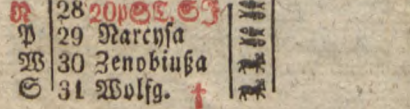 N 28 20pSC. SJ
P 29 Narcyſa
W 30 Zenobiußa
S 31 Wolfg. †